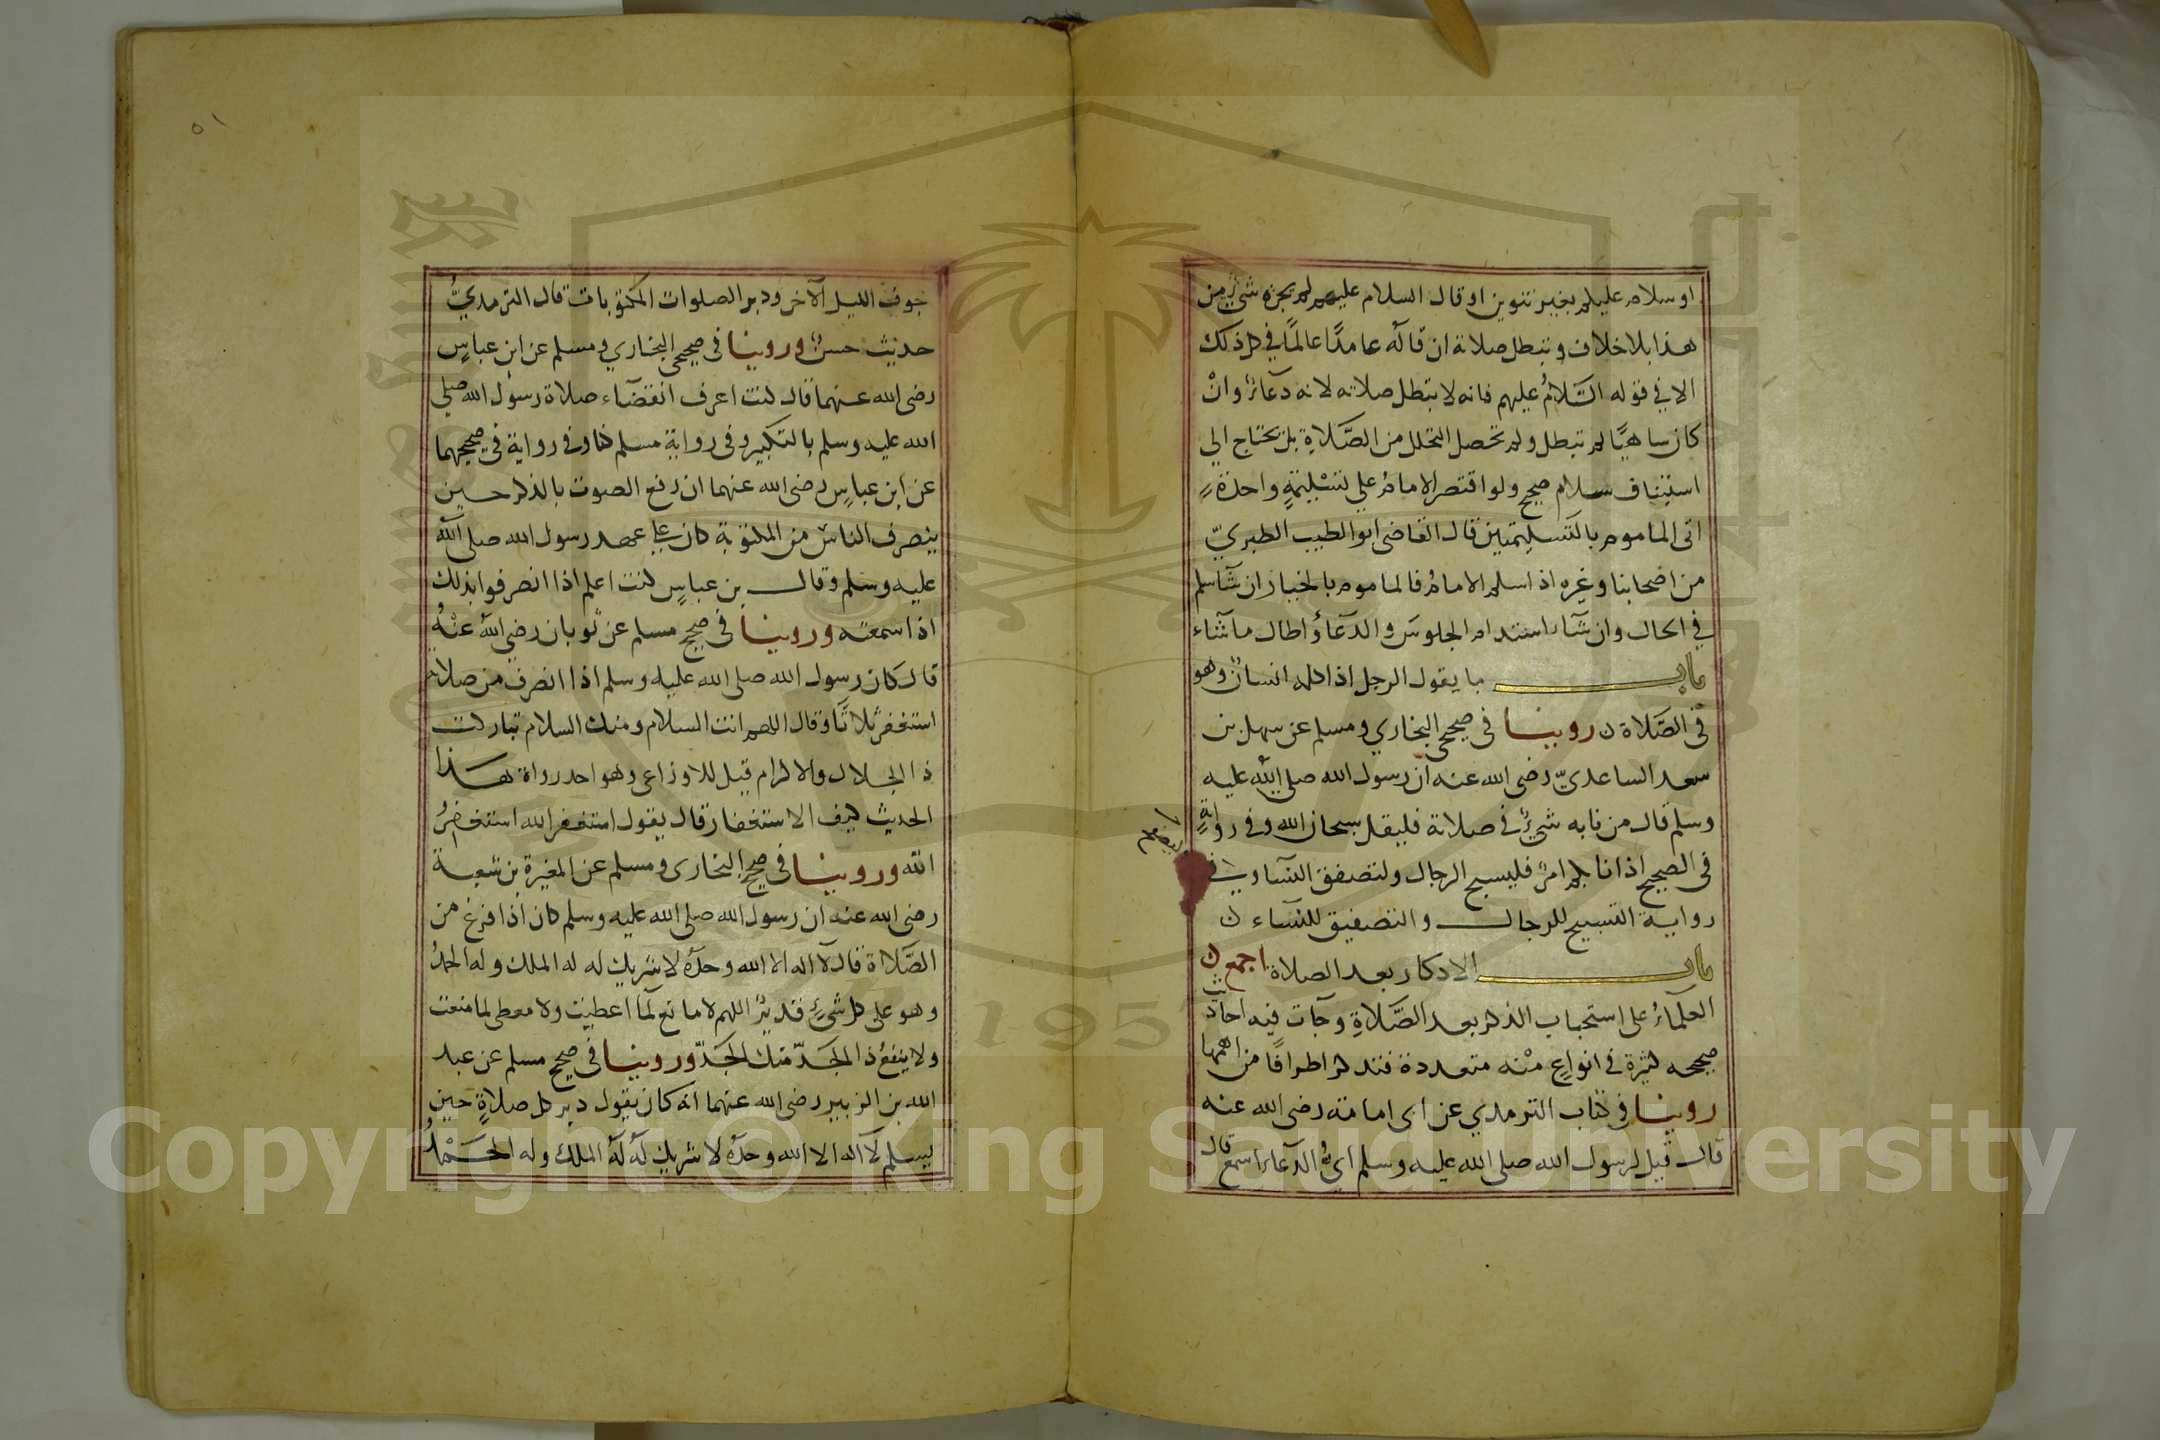 او سلام عليكم بغير تنوين او قال السلام عليهم لم يجزه شيء من
هذا بلا خلاف وتبطل صلاته ان قاله عامدًا عالمًا في كل ذلك
الا في قوله السَّلامُ عليهم فانه لا تبطل صلاته لانه دعآءٌ وانْ
كان ساهيًا لم تبطل ولم تحصل التحلل من الصَّلاةِ بل يحتاج الي
استيناف سلام صحيح ولو اقتصر الامامُ علي تسْليمَةٍ واحدةٍ
اتى الماموم بالتسليمتين قال القاضى ابو الطيب الطبريّ
من اصحابنا وغيره اذا سلم الامامُ فالماموم بالخيار ان شآ سلم
في الحال وان شآء استدام الجلوسَ والدعآءُ واطال ما شآء
باب ما يقول الرجل اذا كلمه انسانٌ وهو
في الصَّلاة ن روينا في صحيحى البخاري ومسلم عن سهل بن
سعد الساعديّ رضى الله عنه ان رسول الله صلى الله عليه
وسلم قال من نابه شيءٌ في صلاته فليقل سبحان الله وفي روايةٍ
في الصحيح اذا نابكم امرٌ فليسبح الرجال ولتصفق النسآء وفي
رواية التسبيح للرجال والتصفيق للنسآء ن
باب الاذكار بعد الصلاة اجمع ن
العلمآءُ على استحباب الذكر بعد الصَّلاةِ وجآت فيه احاديث
صحيحه كثيرة في انواعٍ منْه متعددة فنذكر اطرافًا من اهمها
روينا في كتاب الترمذي عن ابى امامة رضى الله عنه
قال قيل لرسول الله صلى الله عليه وسلم ايُّ الدعآء اسمع قال
٥١
جوف الليل الآخر ودبر الصلوات المكتوبات قال الترمذيُّ
حديث حسنٌ وروينا في صحيحى البخاري ومسلم عن ابن عباسٍ
رضى الله عنهما قال كنت اعرف انقضآء صلاة رسول الله صلي
الله عليه وسلم بالتكبير وفى رواية مسلم كنا وفى رواية في صحيحيهما
عن ابن عباسٍ رضى الله عنهما ان رفع الصوت بالذكر حين
ينصرف الناس من المكتوبة كان على عهد رسول الله صلى الله
عليه وسلم وقال بن عباسٍ كنت اعلم اذا انصرفوا بذلك
اذا سمعته وروينا في صحيح مسلم عن ثوبان رضى الله عنْهُ
قال كان رسول الله صلى الله عليه وسلم اذا انصرف من صلاته
استغفر ثلاثًا وقال اللهم انت السلام ومنك السلام تباركت
ذا الجلال والاكرام قيل للاوزاعى وهو احد رواة هذا
الحديث كيف الاستغفار قال يقول استغفر الله استغفرُ
الله وروينا في صحيح البخارى ومسلم عن المغيرة بن شعبة
رضى الله عنه ان رسول الله صلى الله عليه وسلم كان اذا فرغ من
الصَّلاة قال لآ اله الا الله وحدَهُ لا شريك له له الملك وله الحمدُ
وهو على كل شيءٍ قديرٌ اللهم لا مانع لمآ اعطيت ولا معطى لما منعت
ولا ينفعُ ذا الجَدّ منك الجَدّ وروينا في صحيح مسلم عن عبد
الله بن الزبير رضى الله عنهما انه كان يقول دبر كل صلاةٍ حين
يسلم لآ اله الا الله وحدَهُ لا شريك لَهُ لَهُ الملك وله الحَمْدُ
Copyright © King Saud University
195